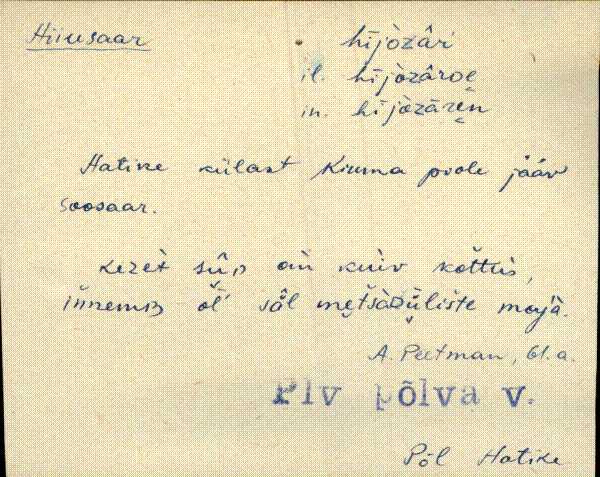 Hiiusaar hījòzâri
il. hījòzâroe
in. hījòzāren
Hatike külast Kiuma poole jääv
soosaar.
kuiv kõttus,
innemb õl' säl metsàvüliste majà.
A. Peetman, 61.a.
Plv põlva v.
Põl Hatike